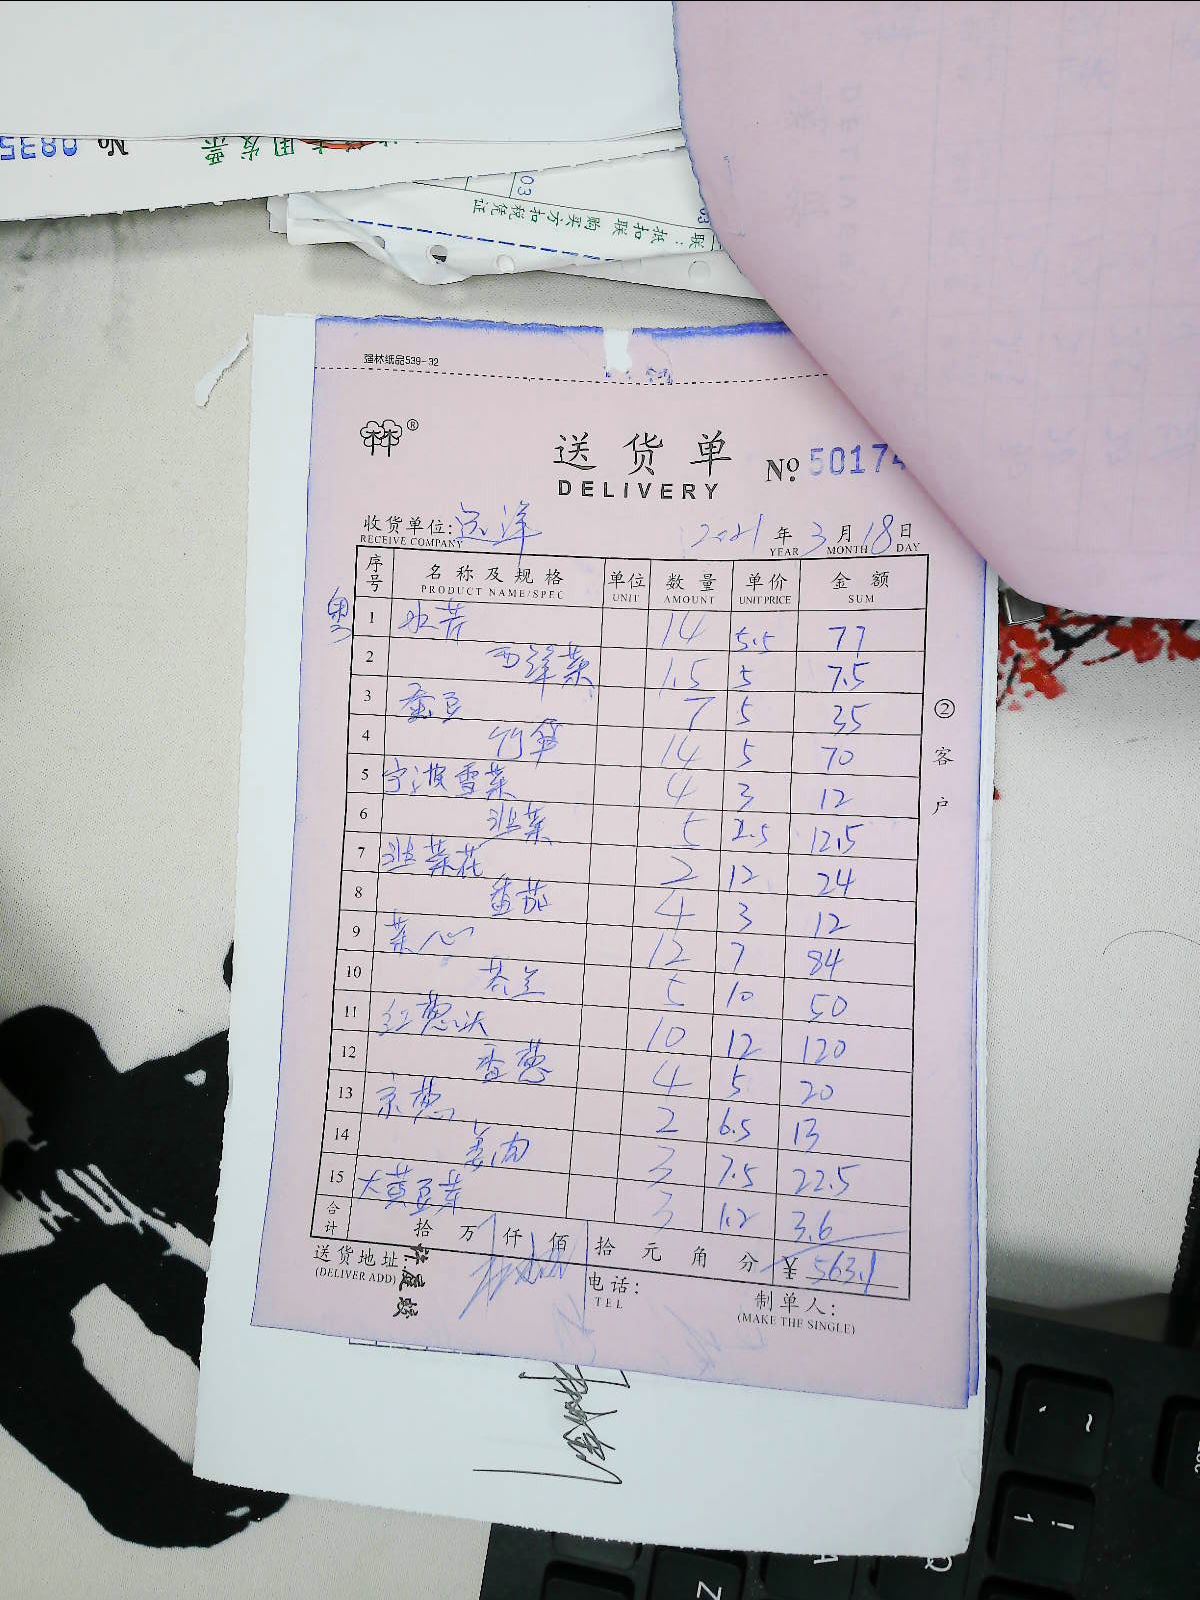 No 0835
用发票
03
联:抵扣联 购买方扣税凭证
强林纸品539-32
林®
送货单 No. 50174
DELIVERY
收货单位: 远洋 2021 年 3 月 18 日
RECEIVE COMPANY YEAR MONTH DAY
序号 名称及规格 单位 数量 单价 金额
PRODUCT NAME/SPEC UNIT AMOUNT UNIT PRICE SUM
粤
1 水芹 14 5.5 77
2 西洋菜 1.5 5 7.5
3 蚕豆 7 5 35
4 竹笋 14 5 70
5 宁波雪菜 4 3 12
6 韭菜 5 2.5 12.5
7 韭菜花 2 12 24
8 番茄 4 3 12
9 菜心 12 7 84
10 芥兰 5 10 50
11 红葱头 10 12 120
12 香葱 4 5 20
13 京葱 2 6.5 13
14 姜肉 3 7.5 22.5
15 大黄豆芽 3 1.2 3.6
合计 拾 万 仟 佰 拾 元 角 分 ¥ 563.1
送货地址: 电话: 制单人:
(DELIVER ADD) TEL (MAKE THE SINGLE)
②客户